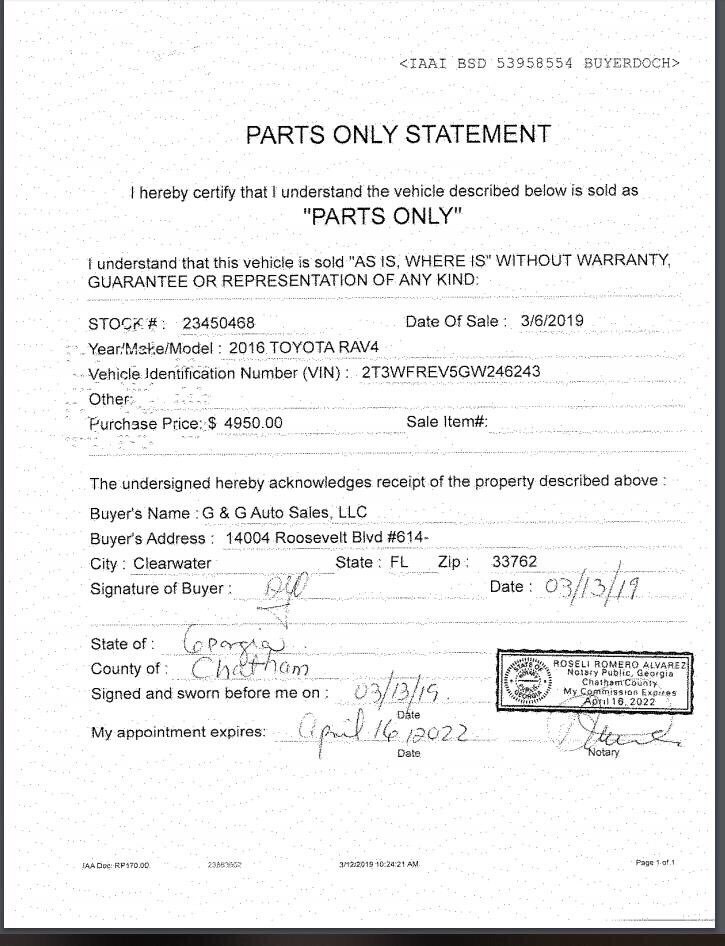 <IAAI BSD 53958554 BUYERDOCH>
PARTS ONLY STATEMENT
I hereby certify that I understand the vehicle described below is sold as
"PARTS ONLY"
I understand that this vehicle is sold "AS IS, WHERE IS" WITHOUT WARRANTY,
GUARANTEE OR REPRESENTATION OF ANY KIND:
STOCK # : 23450468 Date Of Sale : 3/6/2019
Year/Make/Model : 2016 TOYOTA RAV4
Vehicle Identification Number (VIN) : 2T3WFREV5GW246243
Other:
Purchase Price: $ 4950.00 Sale Item#:
The undersigned hereby acknowledges receipt of the property described above :
Buyer's Name : G & G Auto Sales, LLC
Buyer's Address : 14004 Roosevelt Blvd #614-
City : Clearwater State : FL Zip : 33762
Signature of Buyer : Date : 03/13/19
State of : Georgia
County of : Chatham
ROSELI ROMERO ALVAREZ
Notary Public, Georgia
Chatham County
My Commission Expires
April 16, 2022
STATE OF GEORGIA
Signed and sworn before me on : 03/13/19
Date
My appointment expires: April 16, 2022
Date
Notary
IAA Doc: RP170.00 3/12/2019 10:24:21 AM Page 1 of 1